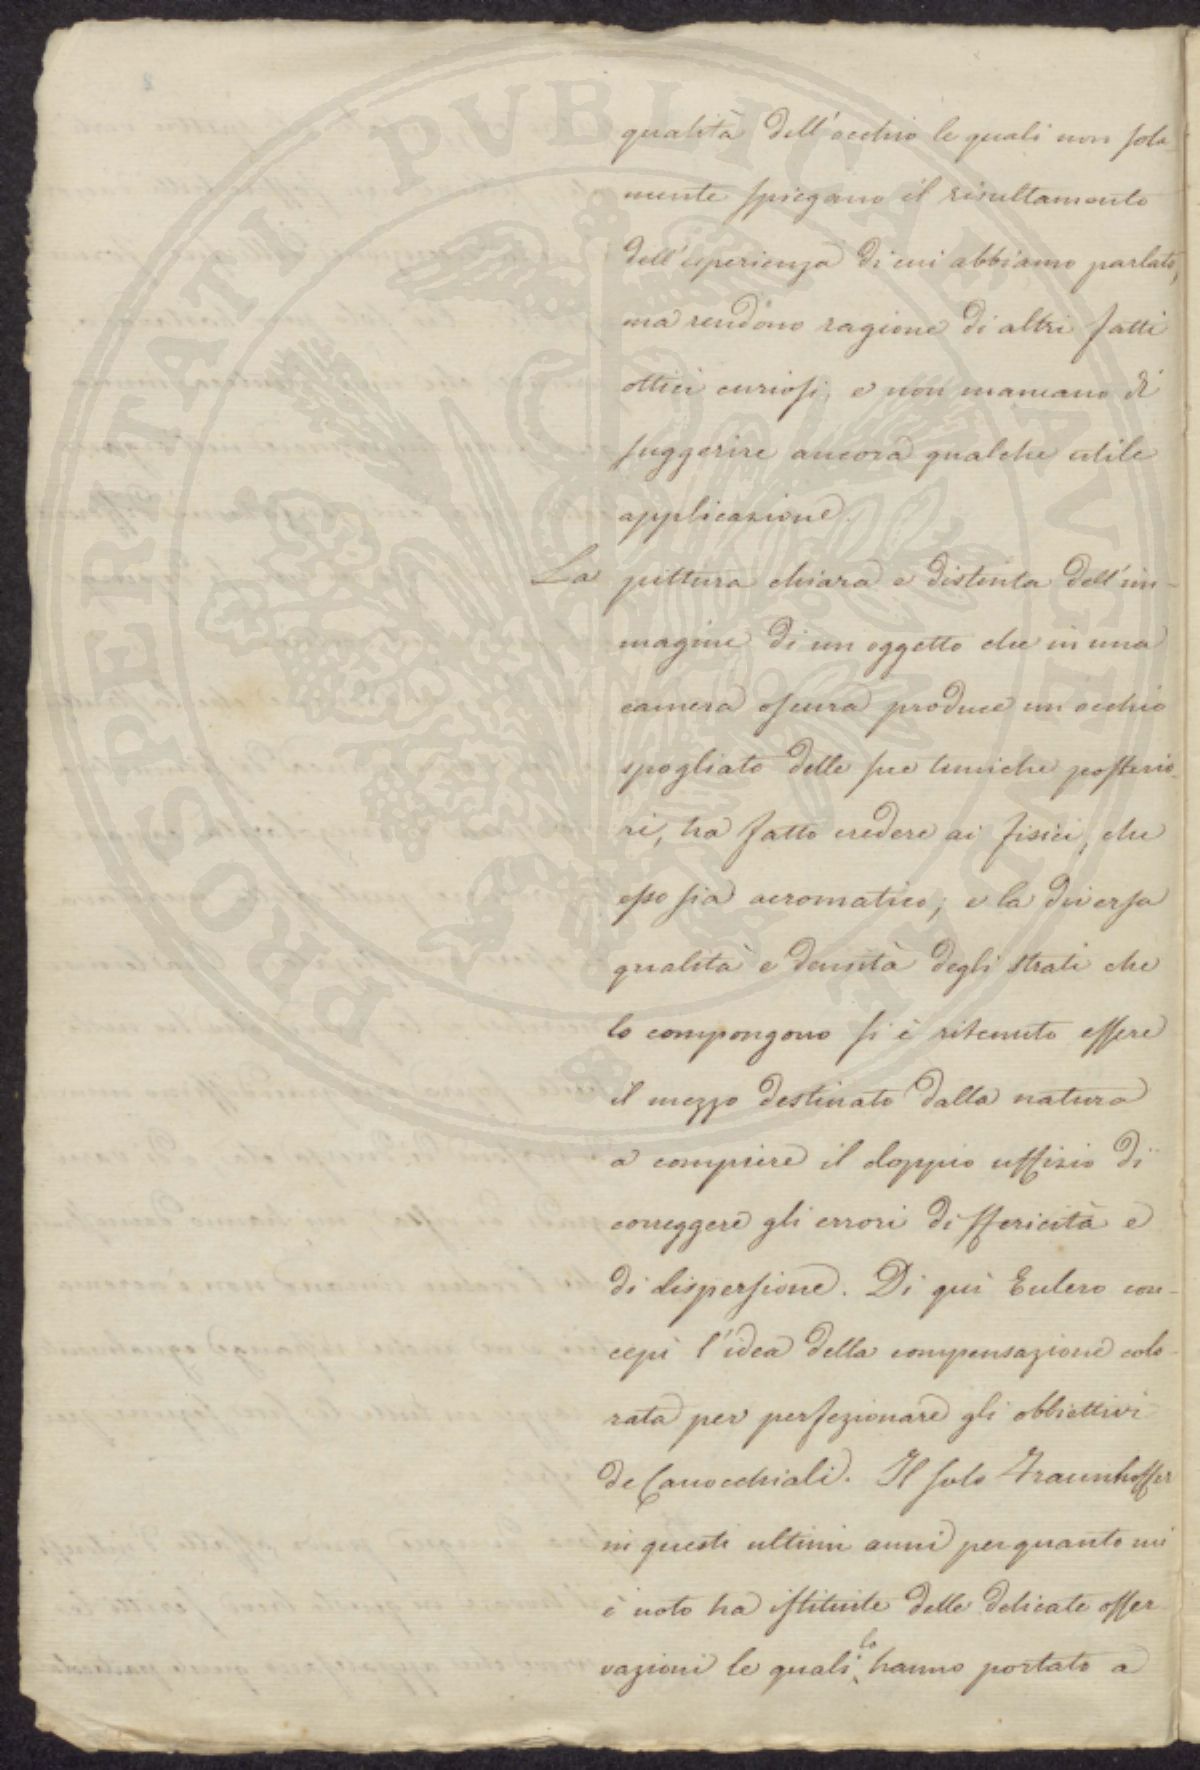 PVBLICAE FELICITATI PROSPERITATI
qualità dell'occhio le quali non sola-
mente spiegano il risultamento
dell'esperienza di cui abbiamo parlato,
ma rendono ragione di altri fatti
ottici curiosi, e non mancano di
suggerire ancora qualche utile
applicazione.
La pittura chiara e distinta dell'im-
magine di un oggetto che in una
camera oscura produce un occhio
spogliato delle sue tuniche posterio-
ri, ha fatto credere ai fisici, che
esso sia acromatico; e la diversa
qualità e densità degli strati che
lo compongono si è ritenuto essere
il mezzo destinato dalla natura
a compiere il doppio uffizio di
correggere gli errori di sfericità e
di dispersione. Di qui Eulero con-
cepì l'idea della compensazione colo-
rata per perfezionare gli obbiettivi
de Canocchiali. Il solo Fraunhoffer
in questi ultimi anni per quanto mi
è noto ha istituite delle delicate osser-
vazioni le quali lo hanno portato a